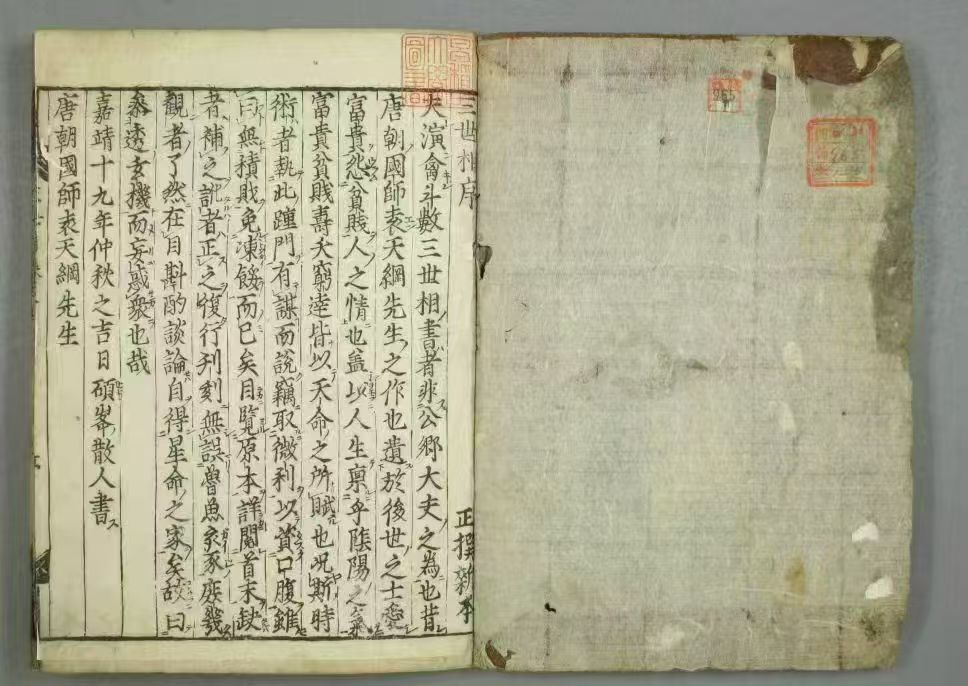 三世相序
正撰新本
夫演禽斗數三世相書者非公卿大夫之為也昔
唐朝國師袁天綱先生之作也遺於後世之士愛
富貴怨貧賤人之情也蓋以人生稟乎陰陽之
富貴貧賤壽夭窮達皆以天命之所賦也況斯時
術者執此踵門有謀而說竊取微利以資口腹雖
曰無積財免凍餒而已矣目覽原本詳閱首末缺
者補之訛者正之復行刊刻無誤魯魚亥豕庶幾
觀者了然在目斟酌談論自得星命之家矣故曰
參透玄機而妄惑衆也哉
嘉靖十九年仲秋之吉日碩峯散人書
唐朝國師袁天綱先生